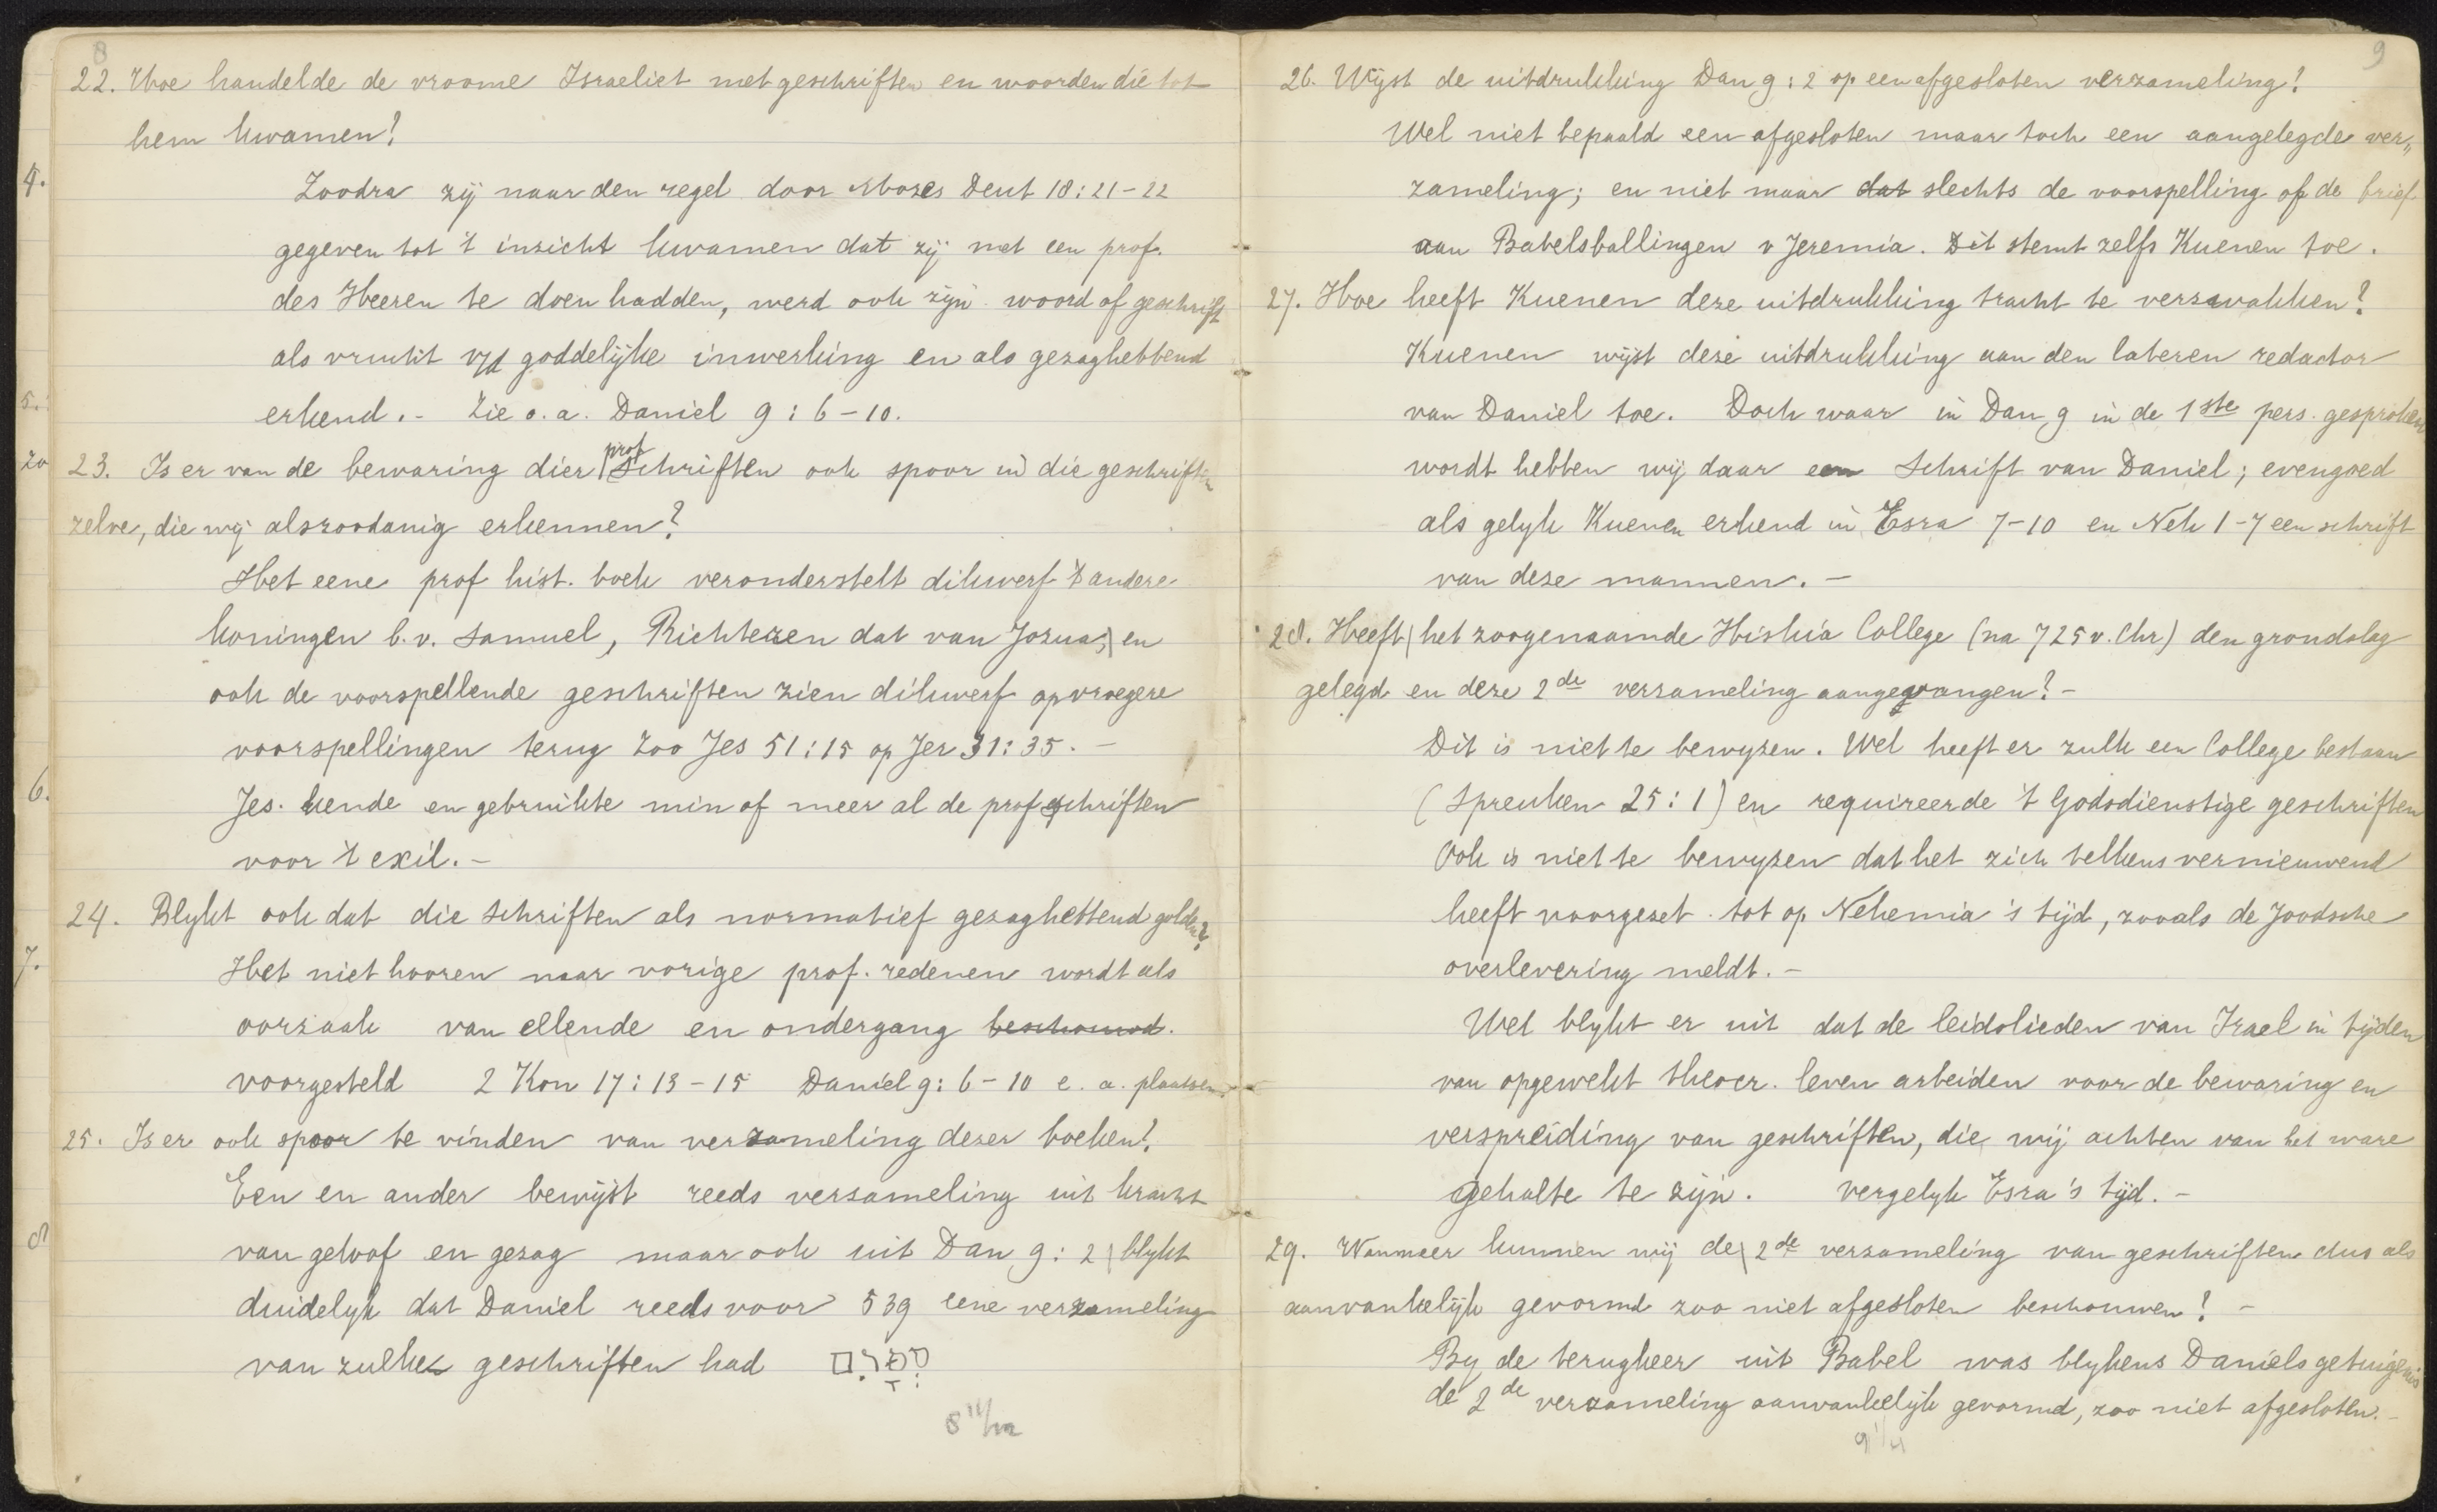 8
22. Hoe handelde de vroome Israeliet met geschriften en woorden die tot
hem kwamen?
Zoodra zij naar den regel door Mozes Deut 18:21-22
gegeven tot 't inzicht kwamen dat zij met een prof.
des Heeren te doen hadden, werd ook zijn woord of geschrift
als vrucht v/d goddelijke inwerking en als gezaghebbend
erkend. - Zie o.a. Daniel 9:6-10.
23. Is er van de bewaring dier prof schriften ook spoor in die geschriften
zelve, die wij alszoodanig erkennen?
Het eene prof hist. boek veronderstelt dikwerf 't andere
koningen b.v. Samuel, Richteren dat van Jozua; en
ook de voorspellende geschriften zien dikwerf op vroegere
voorspellingen terug zoo Jes 51:15 op Jer 31:35. -
Jes. kende en gebruikte min of meer al de prof schriften
voor 't exil. -
24. Blykt ook dat die schriften als normatief gezaghebbend golden?
Het niet hooren naar vorige prof. redenen wordt als
oorzaak van ellende en ondergang beschouwd.
voorgesteld 2 Kon 17:13-15 Daniel 9:6-10 e. a. plaatsen.
25. Is er ook spoor te vinden van verzameling dezer boeken?
Een en ander bewijst reeds verzameling uit kracht
van geloof en gezag maar ook uit Dan 9:2 blykt
duidelyk dat Daniel reeds voor 539 eene verzameling
van zulke geschriften had
4.
5.
zo
6.
7.
8
9
26. Wijst de uitdrukking Dan 9:2 op een afgesloten verzameling?
Wel niet bepaald een afgesloten maar toch een aangelegde ver„
zameling; en niet maar dat slechts de voorspelling of de brief
aan Babelsballingen v Jeremia. Dit stemt zelfs Kuenen toe.
27. Hoe heeft Kuenen deze uitdrukking tracht te verzwakken?
Kuenen wijst deze uitdrukking aan den lateren redactor
van Daniel toe. Doch waar in Dan 9 in de 1ste pers. gesproken
wordt hebben wij daar een Schrift van Daniel; evengoed
als gelyk Kuenen erkend in Esra 7-10 en Neh 1-7 een schrift
van deze mannen. -
28. Heeft het zoogenaamde Hiskia College (na 725 v. Chr) den grondslag
gelegd en deze 2de verzameling aangevangen? -
Dit is niet te bewyzen. Wel heeft er zulk een College bestaan
(Spreuken 25:1) en requireerde 't Godsdienstige geschriften
Ook is niet te bewyzen dat het zich telkens vernieuwend
heeft voorgezet tot op Nehemia's tijd, zooals de Joodsche
overlevering meldt. -
Wel blykt er uit dat de leidslieden van Israel in tijden
van opgewekt theocr. leven arbeiden voor de bewaring en
verspreiding van geschriften, die wij achten van het ware
gehalte te zijn. vergelyk Esra's tijd. -
29. Wanneer kunnen wij de 2de verzameling van geschriften dus als
aanvankelijk gevormd zoo niet afgesloten beschouwen? -
By de terugkeer uit Babel was blykens Daniels getuigenis
de 2de verzameling aanvankelijk gevormd, zoo niet afgesloten. -